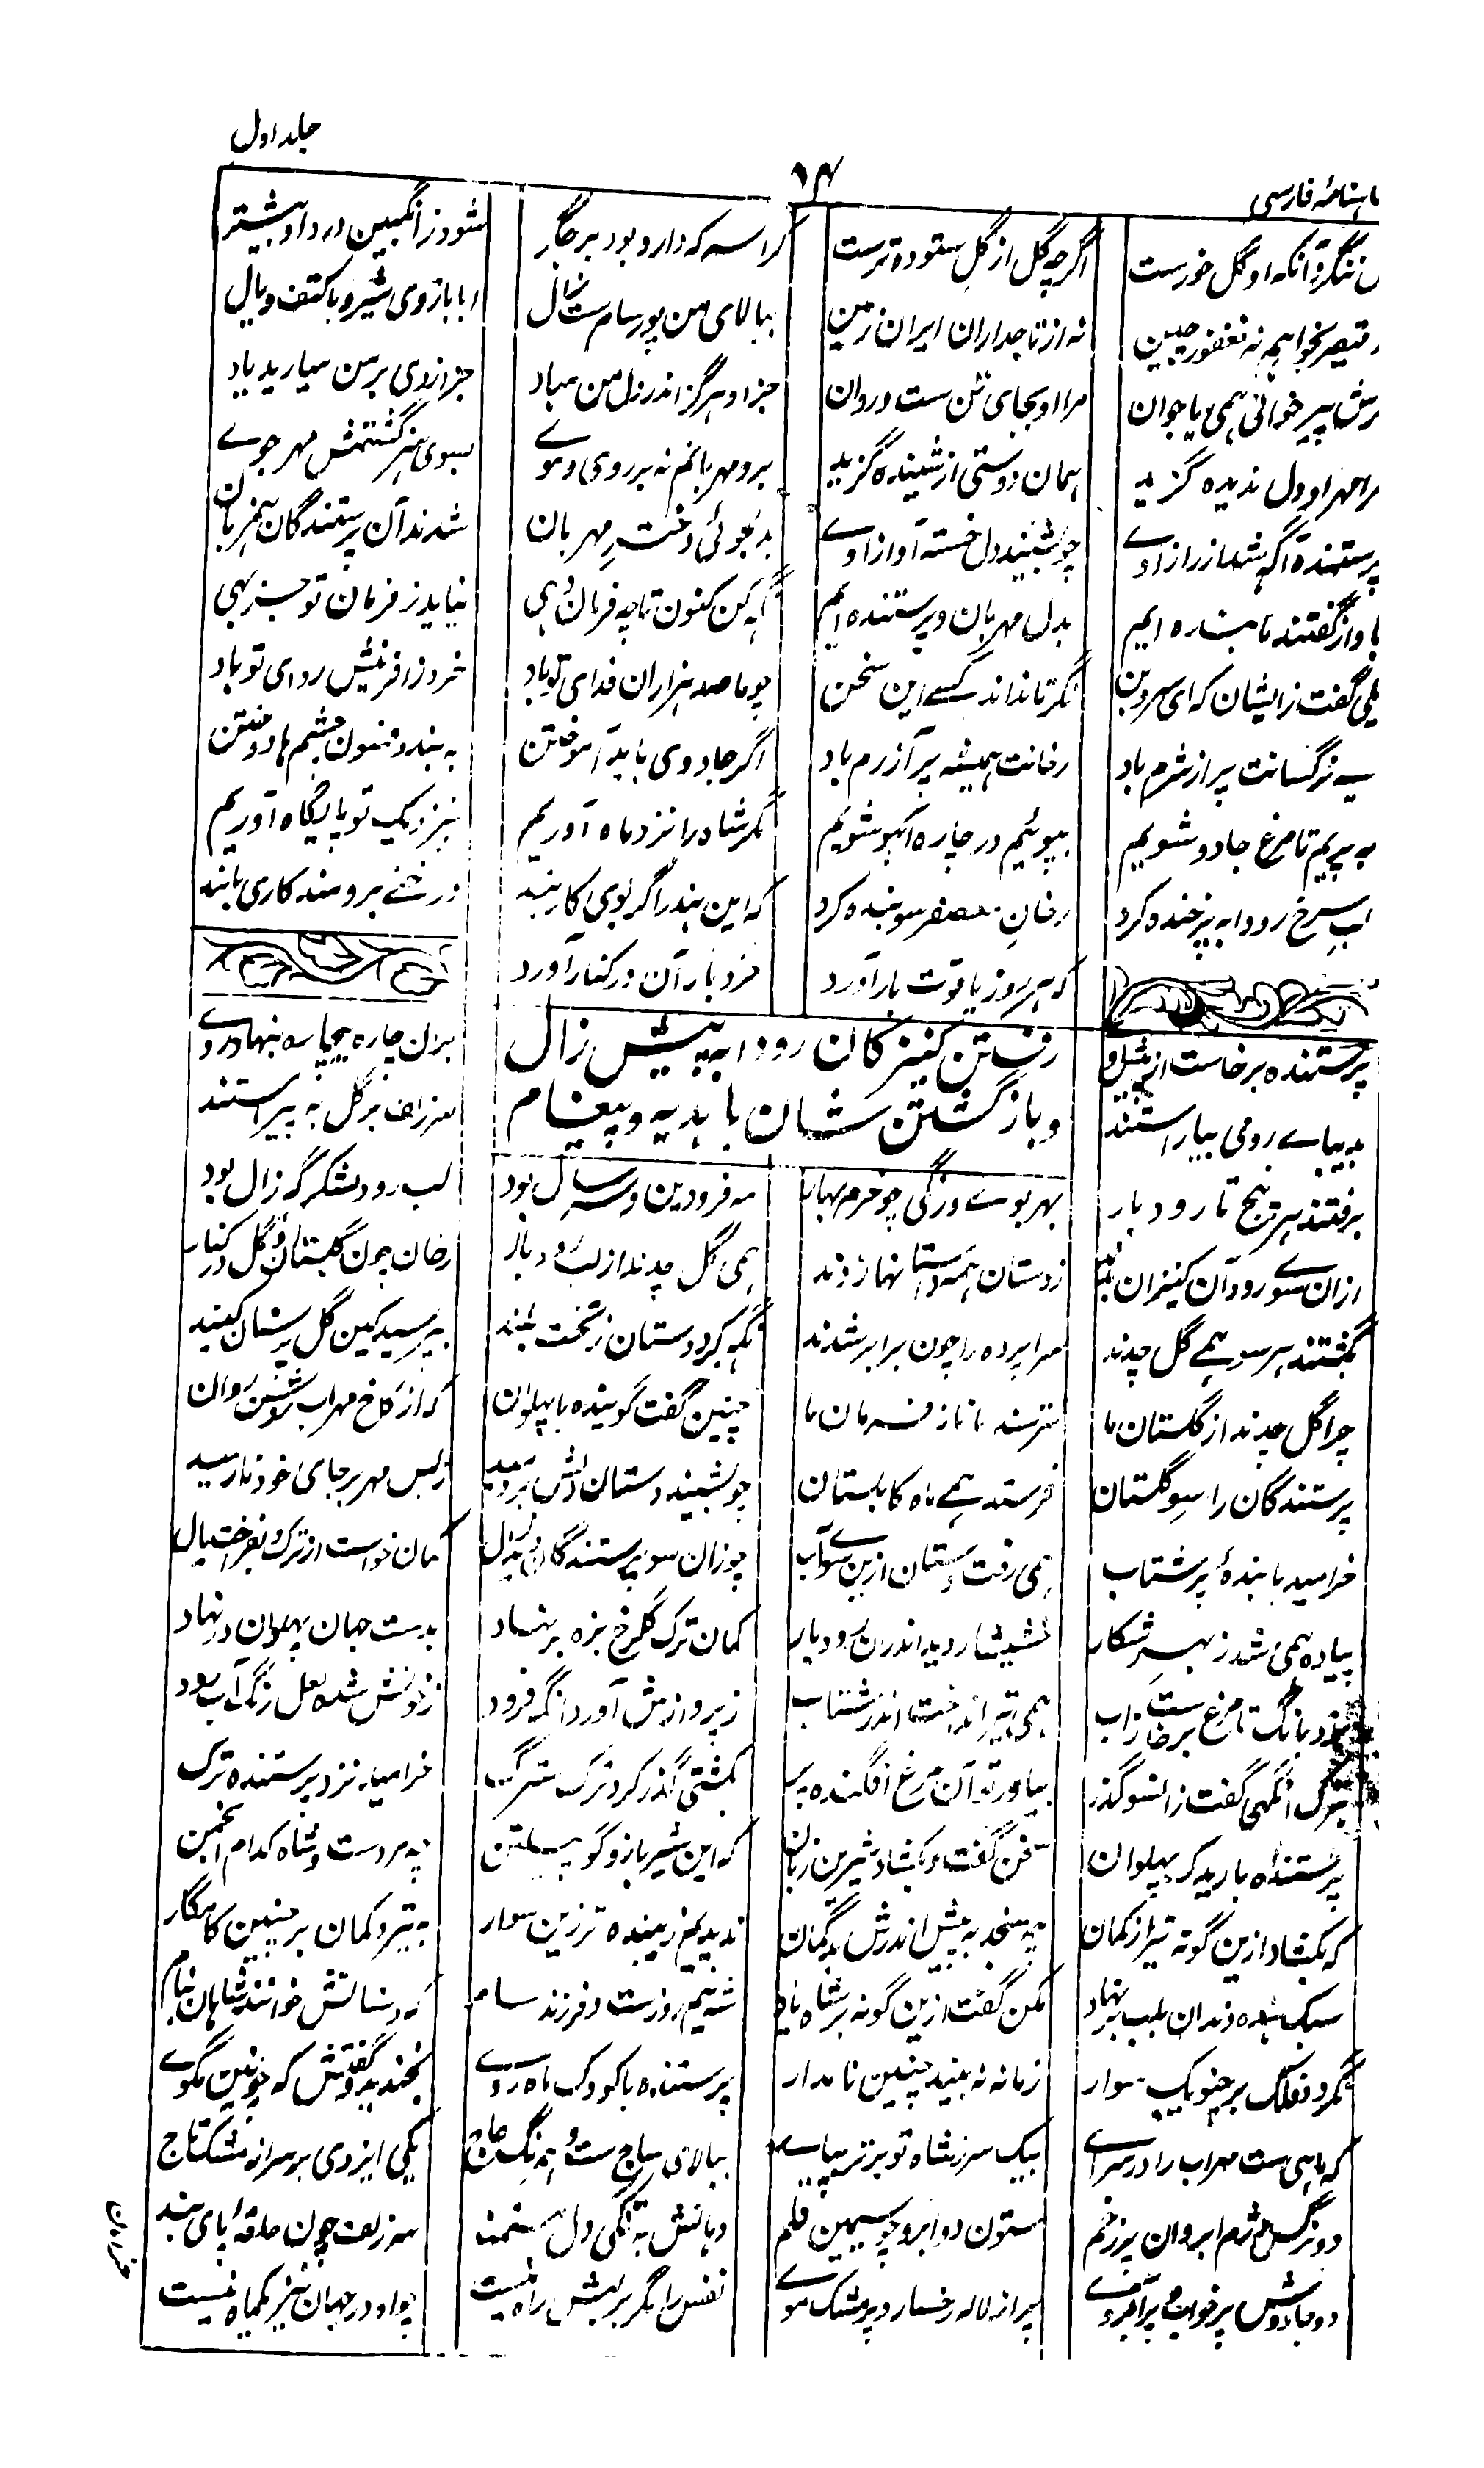 شاهنامهٔ فارسی ۱۴ جلد اول
بنگر آنکه او گل خورست اگرچه گل از گل ستوده ترست کرا سرکه دارو بود بر جگر شود ز انگبین درد او بیشتر
قیصر نخواهم نه فغفور چین نه از تاجداران ایران زمین ببالای من پور سام ست زال ابا بازوی شیر و با کتف و یال
گرش پیر خوانی همی یا جوان مرا او بجای تن ست و روان جز او هرگز اندر دل من مباد جز از وی بر من میارید یاد
مرا مهر او دل ندیده گزید همان دوستی از شنیده گزید برو مهربانم نه بر روی و موی بسوی هنر گشتمش مهرجوی
پرستنده آگه شد از راز اوی چو بشنید دل خسته آواز اوی بدلجوئی دخت مهربان شدند آن پرستندگان همزبان
باواز گفتند ما بنده ایم بدل مهربان و پرستنده ایم نگه کن کنون تا چه فرمان دهی نیاید ز فرمان تو جز بهی
یکی گفت زایشان که ای سروبن نگر تا نداند کسی این سخن چو ما صد هزاران فدای تو باد خرد ز آفرینش روای تو باد
سیه نرگسانت پر از شرم باد رخانت همیشه پر آزرم باد اگر جادوی باید آموختن به بند و فسون چشمها دوختن
به پریم تا مرغ جادو شویم بپوئیم در چاره آهو شویم مگر شاه را نزد ماه آوریم بنزدیک تو پایگاه آوریم
لب سرخ رودابه پر خنده کرد رخان معصفر سوی بنده کرد که این بند را گر بوی کاربند درختی برومند کاری بلند
که هر روز یاقوت بار آورد خرد بار آن در کنار آورد
رفتن کنیزکان رودابه پیش زال
و باز گشتن شان با هدیه و پیغام
پرستنده برخاست از پیش او بدان چاره بیچاره بنهاد رو
بدیبای رومی بیاراستند سر زلف بر گل به پیراستند
برفتند هر پنج تا رودبار بهر بوی و رنگی چو خرم بهار مه فرودین و سر سال بود لب رود لشکرگه زال بود
ازان سوی رود آن کنیزان بدند ز دستان همه داستانها زدند همی گل چدند از لب رودبار رخان چون گلستان و گل در کنار
بگشتند هر سو همی گل چدند سراپرده را چون برابر شدند نگه کرد دستان ز تخت بلند بپرسید کین گل پرستان کیند
چرا گل چدند از گلستان ما نترسند مانا ز فرمان ما چنین گفت گوینده با پهلوان که از کاخ مهراب روشن روان
پرستندگان را سوی گلستان فرستد همی ماه کابلستان چو بشنید دستان دلش بردمید ز بس مهر بر جای خود نارمید
خرامید با بندهٔ پرشتاب همی رفت دستان ازین سوی آب چو زان سو پرستندگان دید زال کمان خواست از ترک و بفراخت یال
پیاده همی شد ز بهر شکار خشیشار دید اندران رودبار کمان ترک گلرخ بزه بر نهاد بدست جهان پهلوان در نهاد
بزد بانگ تا مرغ برخاست ز آب همی تیر انداخت اندر شتاب ز پروازش آورد آنگه فرود ز خونش شده لعل رنگ آب رود
بترک آنگهی گفت زانسو گذر بیاور تو آن مرغ افگنده پر بکشتی گذر کرد ترک سترگ خرامید نزد پرستنده ترک
پرستنده با رید ک پهلوان سخن گفت و بگشاد شیرین زبان که این شیر بازو گو پیلتن چه مردست و شاه کدام انجمن
که بگشاد ازین گونه تیر از کمان چه سنجد به پیش اندرش بدگمان ندیدیم زیبنده تر زین سوار به تیر و کمان بر چنین کامگار
سبک بنده دندان بلب بر نهاد مکن گفت ازین گونه بر شاه یاد شه نیمروزست و فرزند سام که دستانش خوانند شاهان بنام
نگردد فلک بر چنو یک سوار زمانه نه بیند چنین نامدار پرستنده با کودک ماه روی بخندید و گفتش که چونین مگوی
که ماهی ست مهراب را در سرای بیک سر ز شاه تو برتر بپای ببالای ساج ست و همرنگ عاج یکی ایزدی بر سر از مشک تاج
دو نرگس دژم ابروان پر ز خم ستون دو ابرو چو سیمین قلم دهانش به تنگی دل مستمند سر زلف چون حلقهٔ پای بند
دو جادوش پر خواب و پر آب روی پر از لاله رخسار و پر مشک موی نفس را مگر بر لبش راه نیست چو او در جهان نیز یکماه نیست